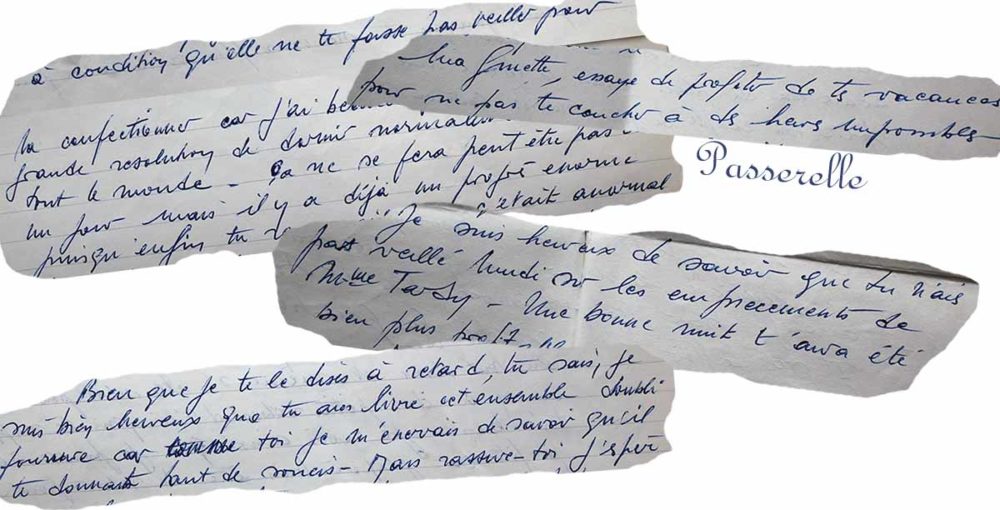 à condition qu'elle ne te fasse pas veiller pour
la confectionner car j'ai
grande resolution de dormir
tout le monde - ça ne se fera peut être pas
un jour mais il y a déjà un progrès enorme
puisqu'enfin tu
c'était anormal
Ma Ginette, essaye de profiter de tes vacances
pour ne pas te coucher à des heures impossibles
Passerelle
Je suis heureux de savoir que tu n'ais
pas veillé lundi sur les empiecements de
Mme Tardy - Une bonne nuit t'aura été
bien plus
Bien que je te le dises à retard, tu sais, je
suis bien heureux que tu aies livré cet ensemble doublé
fourrure car toi je m'énervais de savoir qu'il
te donnait tant de soucis - Mais rassure-toi j'espère